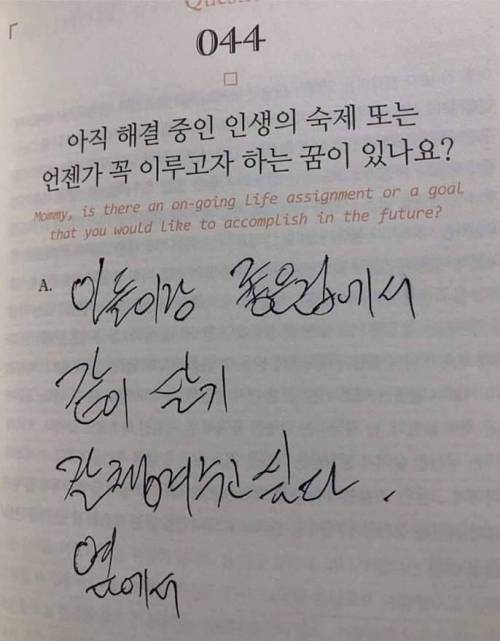 044
아직 해결 중인 인생의 숙제 또는
언젠가 꼭 이루고자 하는 꿈이 있나요?
Mommy, is there an on-going life assignment or a goal
that you would like to accomplish in the future?
A. 아들이랑 좋은집에서
같이 살기
잘 챙겨주고싶다.
옆에서